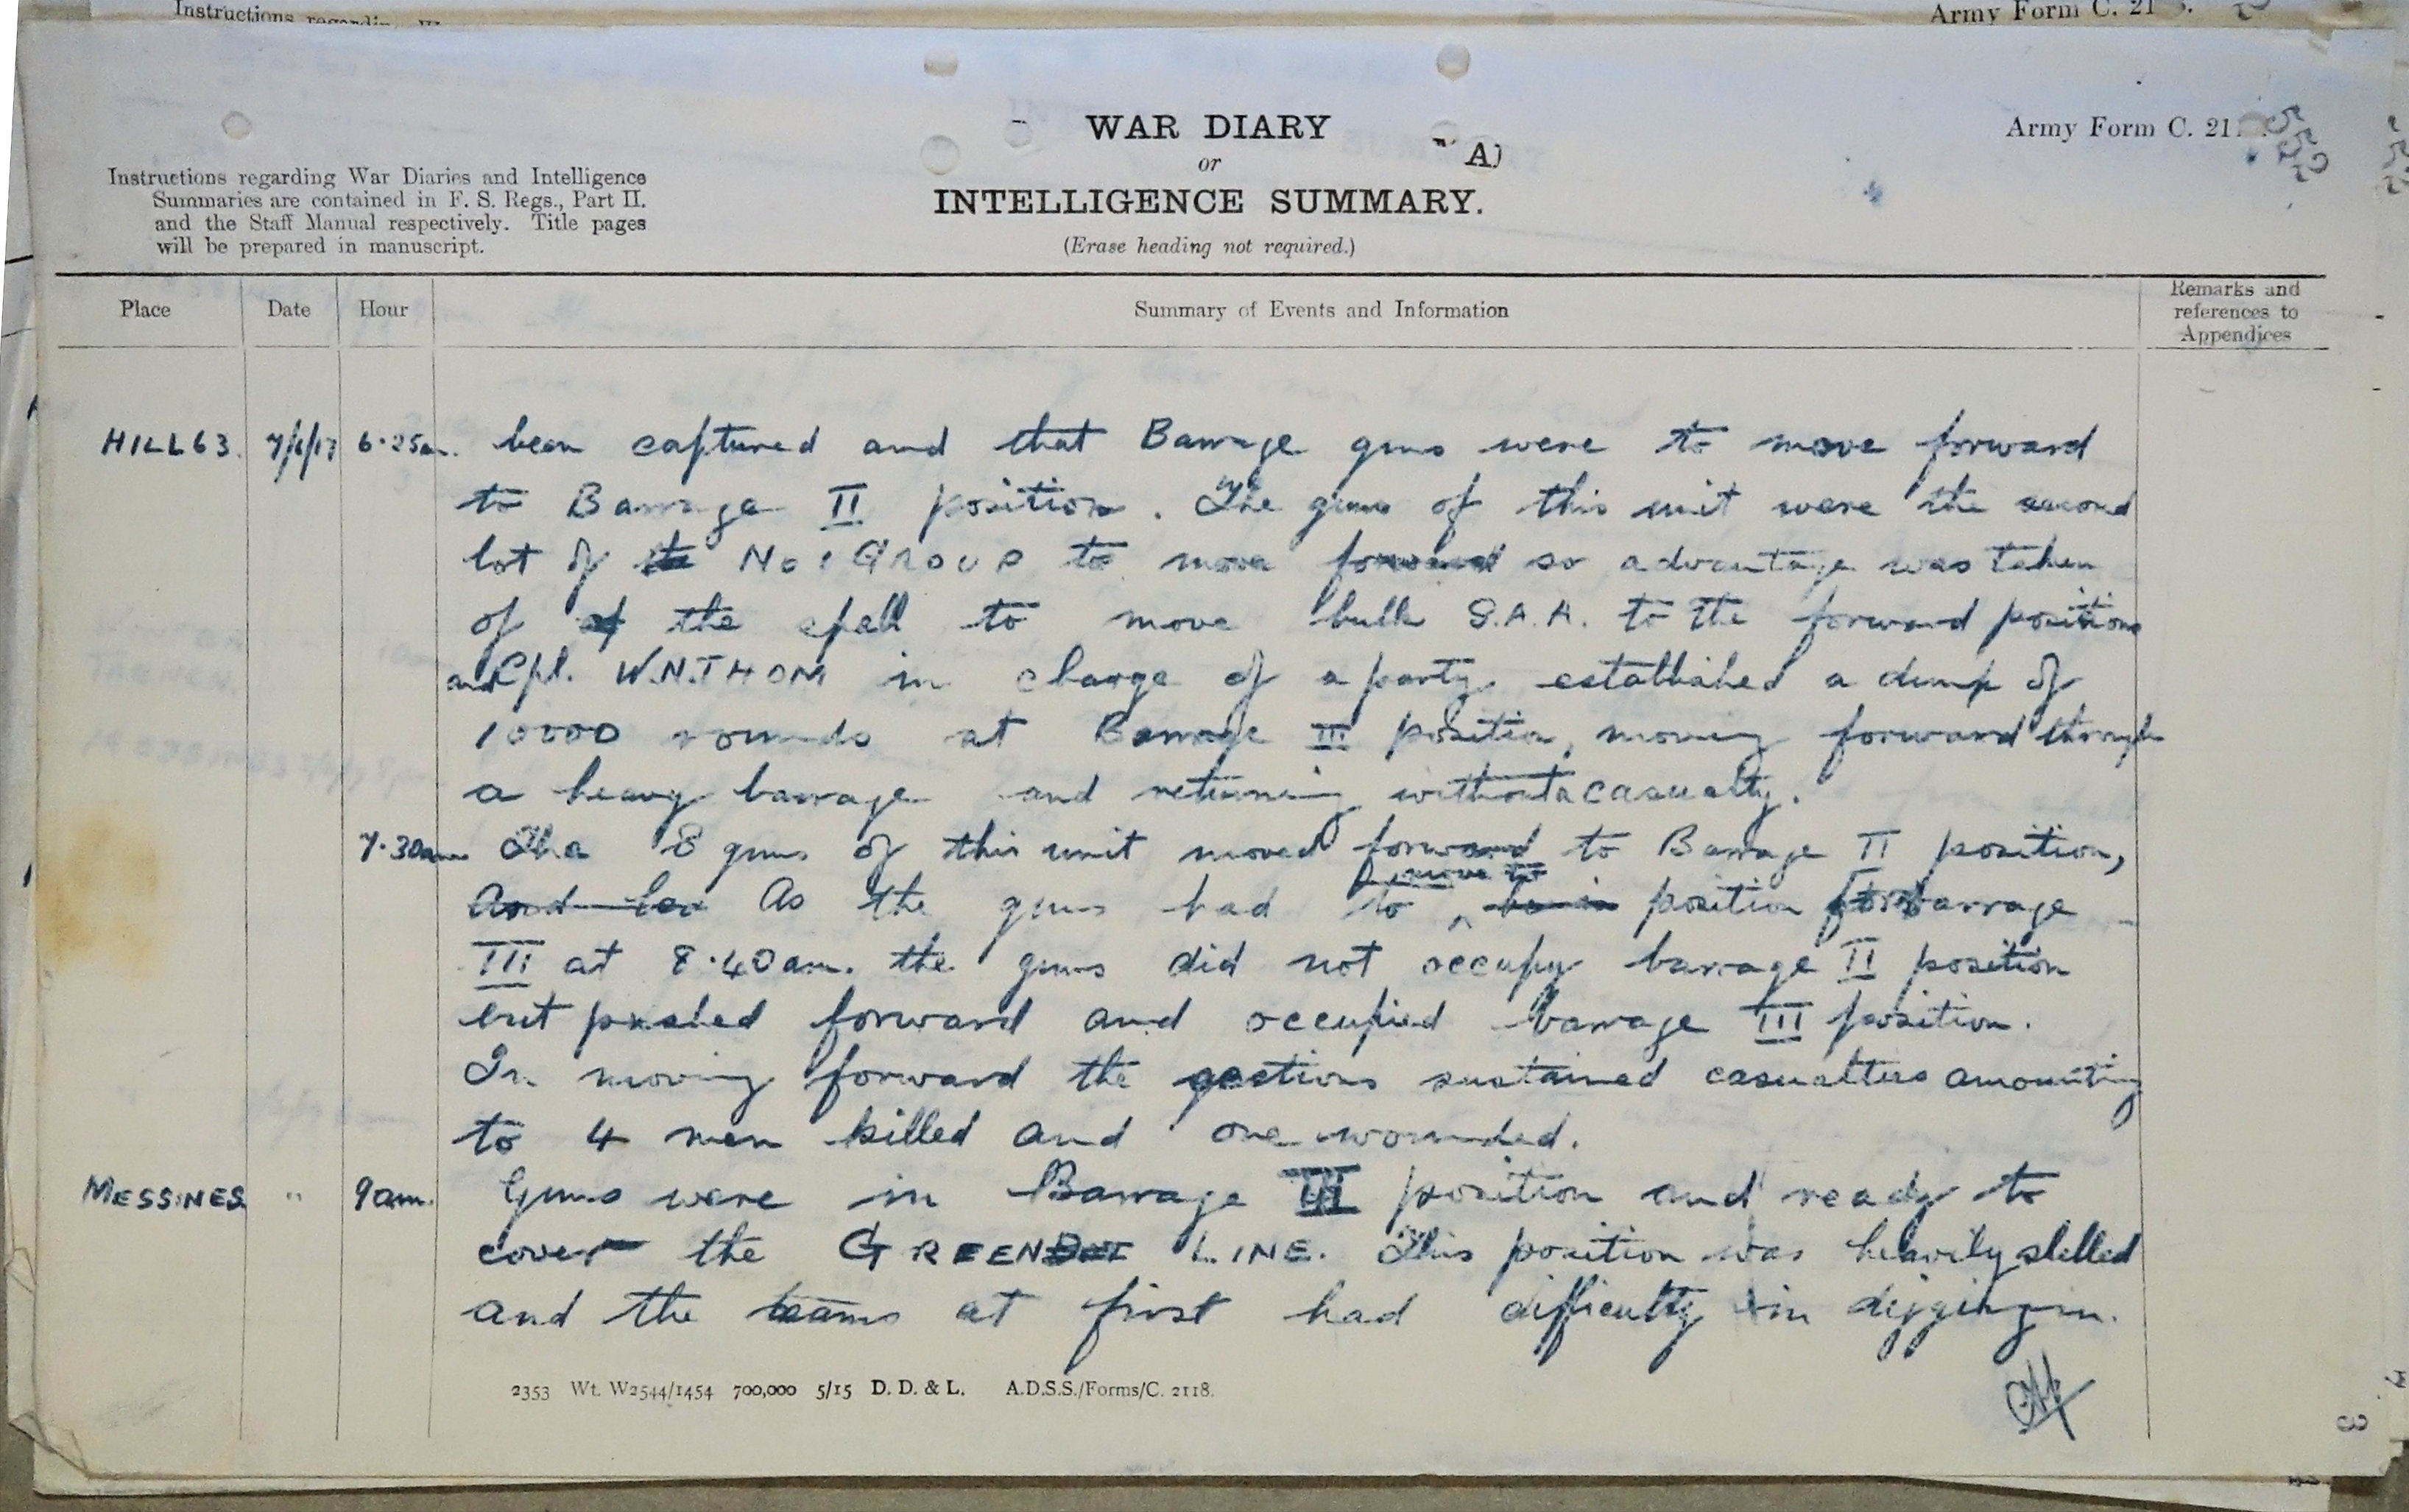 Instructions regarding W
Army Form C. 21
WAR DIARY
or
INTELLIGENCE SUMMARY.
(Erase heading not required.)
A)
Army Form C. 21
Instructions regarding War Diaries and Intelligence
Summaries are contained in F. S. Regs., Part II.
and the Staff Manual respectively. Title pages
will be prepared in manuscript.
Place Date Hour Summary of Events and Information Remarks and references to Appendices
HILL 63. 7/6/17 6.25am. been captured and that Barrage guns were to move forward
to Barrage II position. The guns of this unit were the second
lot of the No 1 GROUP to move forward so advantage was taken
of of the spell to move bulk S.A.A. to the forward positions
and Cpl. W.N. THOM in charge of a party established a dump of
10000 rounds at Barrage III position, moving forward through
a heavy barrage and returning without a casualty.
7.30am The 8 guns of this unit moved forward to Barrage II position,
move to
And As the guns had to be in position for barrage
III at 8.40am. the guns did not occupy barrage II position
but pushed forward and occupied barrage III position.
In moving forward the sections sustained casualties amounting
to 4 men killed and one wounded.
MESSINES " 9am. Guns were in Barrage III position and ready to
cover the GREEN LINE. This position was heavily shelled
and the teams at first had difficulty in digging in.
2353 Wt. W2544/1454 700,000 5/15 D. D. & L. A.D.S.S./Forms/C. 2118.
3